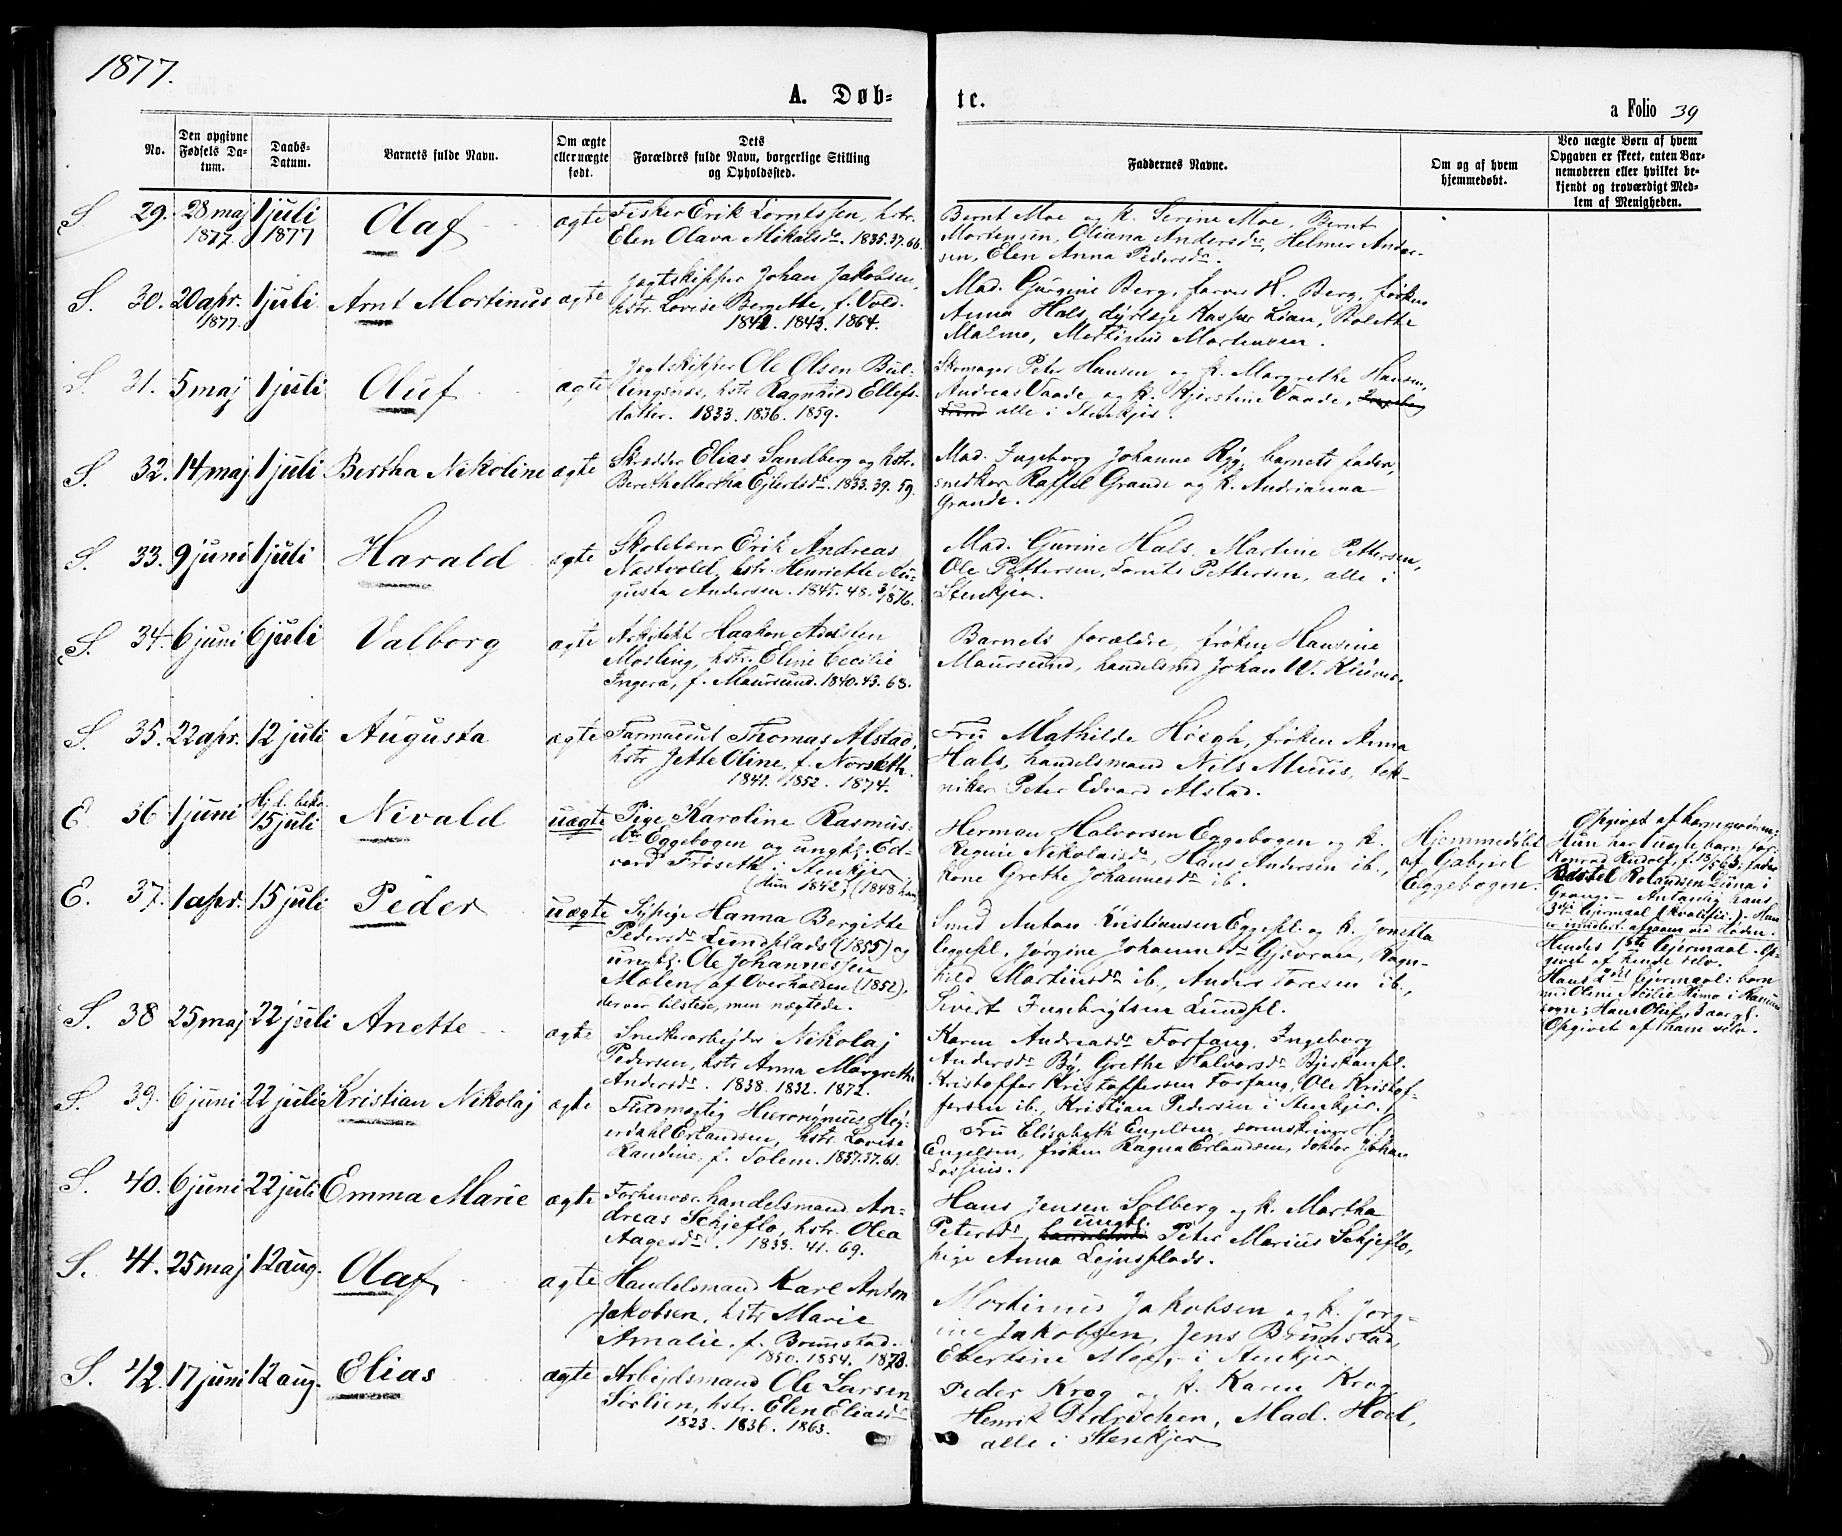 1877.
A. Døb-
te.
a Folio 39
No.
Den opgivne
Fødsels Da-
tum.
Daabs-
Datum.
Barnets fulde Navn.
Om ægte
eller uægte
født.
Dets
Forældres fulde Navn, borgerlige Stilling
og Opholdssted.
Faddernes Navne.
Om og af hvem
hjemmedøbt.
Ved uægte Børn af hvem
Opgaven er skeet, enten Bar-
nemoderen eller hvilket be-
kjendt og troværdigt Med-
lem af Menigheden.
S. 29. 28 maj 1877. 1 juli 1877 Olaf ægte
Fisker Erik Lorntssen, hstr.
Elen Olava Mikalsdr. 1835.37.66.
Bernt Moe og k. Serine Moe, Bernt
Mortensen, Oliana Andersdr, Helmer Ander-
sen, Elen Anna Pedersdr.
S. 30. 20 apr. 1877. 1 juli Arnt Mortinus ægte
Jægtskipper Johan Jakobsen,
hstr. Lovise Bergette, f. Vold.
1842. 1843. 1864.
Mad. Gurgine Berg, farver H. Berg, frøken
Anna Hals, dyrlæge Kasper Lian, Bolette
Malmo, Mortinus Mortensen.
S. 31. 5 maj 1 juli Oluf ægte
Jægtskipper Ole Olsen Bul-
lingsnæs, hstr. Ragnhild Ellefs-
datter. 1833. 1836. 1859.
Skomager Peter Hansen og k. Margrethe Hansen,
Andreas Vaade og k. Kjerstine Vaade, Ingeborg
Lund alle i Stenkjer.
S. 32. 14 maj 1 juli Bertha Nikoline ægte
Skrædder Elias Sandberg og hstr.
Bereth Martha Ejlertsdr. 1833. 39. 59.
Mad. Ingeborg Johanne Ryg, barnets fader,
snedker Raffel Grande og k. Andrianna
Grande.
S. 33. 9 juni 1 juli Harald ægte
Skolelærer Erik Andreas
Næstvold, hstr. Henriette Au-
gusta Andersen. 1845. 48. 3/ 1876.
Mad. Gurine Hals, Martine Pettersen,
Ole Pettersen, Lornts Pettersen, alle i
Stenkjer.
S. 34. 6 juni 6 juli Valborg ægte
Arkitekt Haakon Adelsten
Mosling, hstr. Eline Cecilie
Ingera, f. Maursund. 1840. 43. 68.
Barnets forældre, frøken Hansine
Maursund, handelsmd Johan W. Klüver.
S. 35. 22 apr. 12 juli Augusta ægte
Farmaceut Thomas Alstad,
hstr Jette Oline, f. Norseth.
1841. 1852. 1874.
Fru Mathilde Høegh, frøken Anna
Hals, handelsmand Nils Muus, tek-
niker Peter Edvard Alstad.
E. 36 1 juni Hj.d. bekr. 15 juli Nivald uægte
Pige Karoline Rasmus-
dr Eggebogen og ungk. Ed-
vard Frøseth i Stenkjer
(hun 1842) (1848 han)
Herman Halvorsen Eggebogen og k.
Regine Nikolaisdr, Hans Andersen ib.,
kone Grethe Johannesdr ib.
Hjemmedøbt
af Gabriel
Eggebogen.
Opgivet af barnemoderen:
Hun har 1 uægte barn før:
Konrad Rudolf, f. 13/5 63; fader
Rolandsen Duna i
Grong. – Antagelig hans
3die lejermaal (kvalific.). Hun
E. 37. 1 apr. 15 juli Peder uægte
Sypige Hanna Bergitte
Pedersdr Lundsplads (1855) og
ungk. Ole Johannessen
Mølen af Overhalden (1852),
der var tilstede, men nægtede.
Smed Anton Kristiansen Eggepl. og k. Jonetta
Eggepl., Jørgine Johannesdr Gjevran, Ragn-
hild Martinsdr ib., Anders Toresen ib.,
Sivert Ingebrigtsen Lundspl.
Hendes 1ste lejermaal. Op-
givet af hende selv.
Hans 2det lejermaal: barn
sogn; Hans Oluf, 3 aar gl.
Opgivet af ham selv.
S. 38 25 maj 22 juli Anette ægte
Snedkerarbejder Nikolaj
Pedersen, hstr Anna Margrethe
Andersdr. 1838. 1832. 1872.
Karen Andreasdr Forfang, Ingeborg
Andersdr By, Grethe Halvorsdr Bjerkanpl.
Kristoffer Kristoffersen Forfang, Ole Kristof-
fersen ib., Kristian Pedersen i Stenkjer.
S. 39. 6 juni 22 juli Kristian Nikolaj ægte
Fuldmægtig Hieronymus Hej-
erdahl Erlandsen, hstr. Lovise
Randine, f. Tolem. 1837.37.61.
Fru Elisabeth Engelsen, sorenskriver H. J.
Engelsen, frøken Ragna Erlandsen, doktor Johan
Lossius.
S. 40. 6 juni 22 juli Emma Marie ægte
Forhenvær. handelsmand An-
dreas Schjeflo, hstr. Olea
Aagesdr. 1833. 41. 69.
Hans Jensen Solberg og k. Martha
Petersdr, ungk. Peter Marius Schjeflo,
pige Anna Lejnsplads.
S. 41. 25 maj 12 aug. Olaf ægte
Handelsmand Karl Anton
Jakobsen, hstr Marie
Amalie, f. Brunstad.
1850. 1854. 1873.
Mortinus Jakobsen og k. Jørg-
ine Jakobsen, Jens Brunstad,
Ebertine Moe, i Stenkjer.
S. 42. 17 juni 12 aug. Elias ægte
Arbejdsmand Ole Larsen
Sørlien, hstr. Elen Eliasdr
1823. 1836. 1863.
Peder Krog og k. Karen Krog,
Henrik Didrichen, Mad. Hoel,
alle i Stenkjer